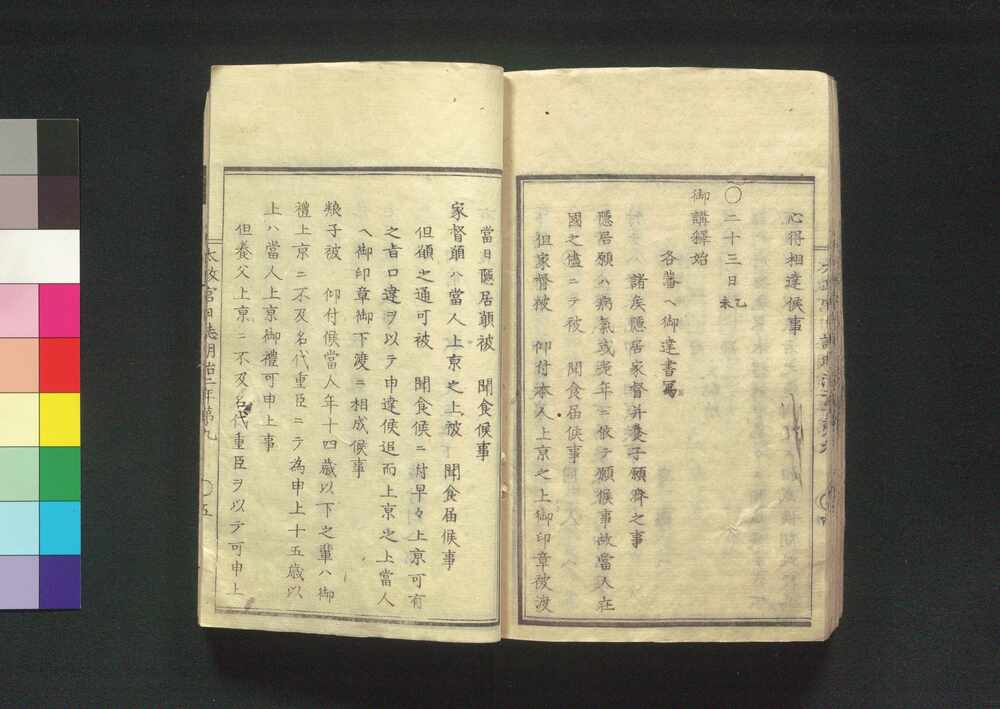 心得相違候事
〇二十三日乙未
御講釋始
各藩ヘ御達書寫
諸矦隱居家督并養子願濟之事
隱居願ハ病氣或老年ニ依テ願候事故當人在
國之儘ニテ被　聞食届候事
但家督被　仰付本人上京之上御印章被渡
當日隱居願被　聞食候事
家督願ハ當人上京之上被　聞食届候事
但願之通可被　聞食候ニ付早々上京可有
之旨口達ヲ以テ申達候追而上京之上當人
ヘ御印章御下渡ニ相成候事
養子被　仰付候當人年十四歲以下之輩ハ御
禮上京ニ不及名代重臣ニテ為申上十五歲以
上ハ當人上京御禮可申上事
但養父上京ニ不及名代重臣ヲ以テ可申上
太政官日誌明治二年第九
〇五